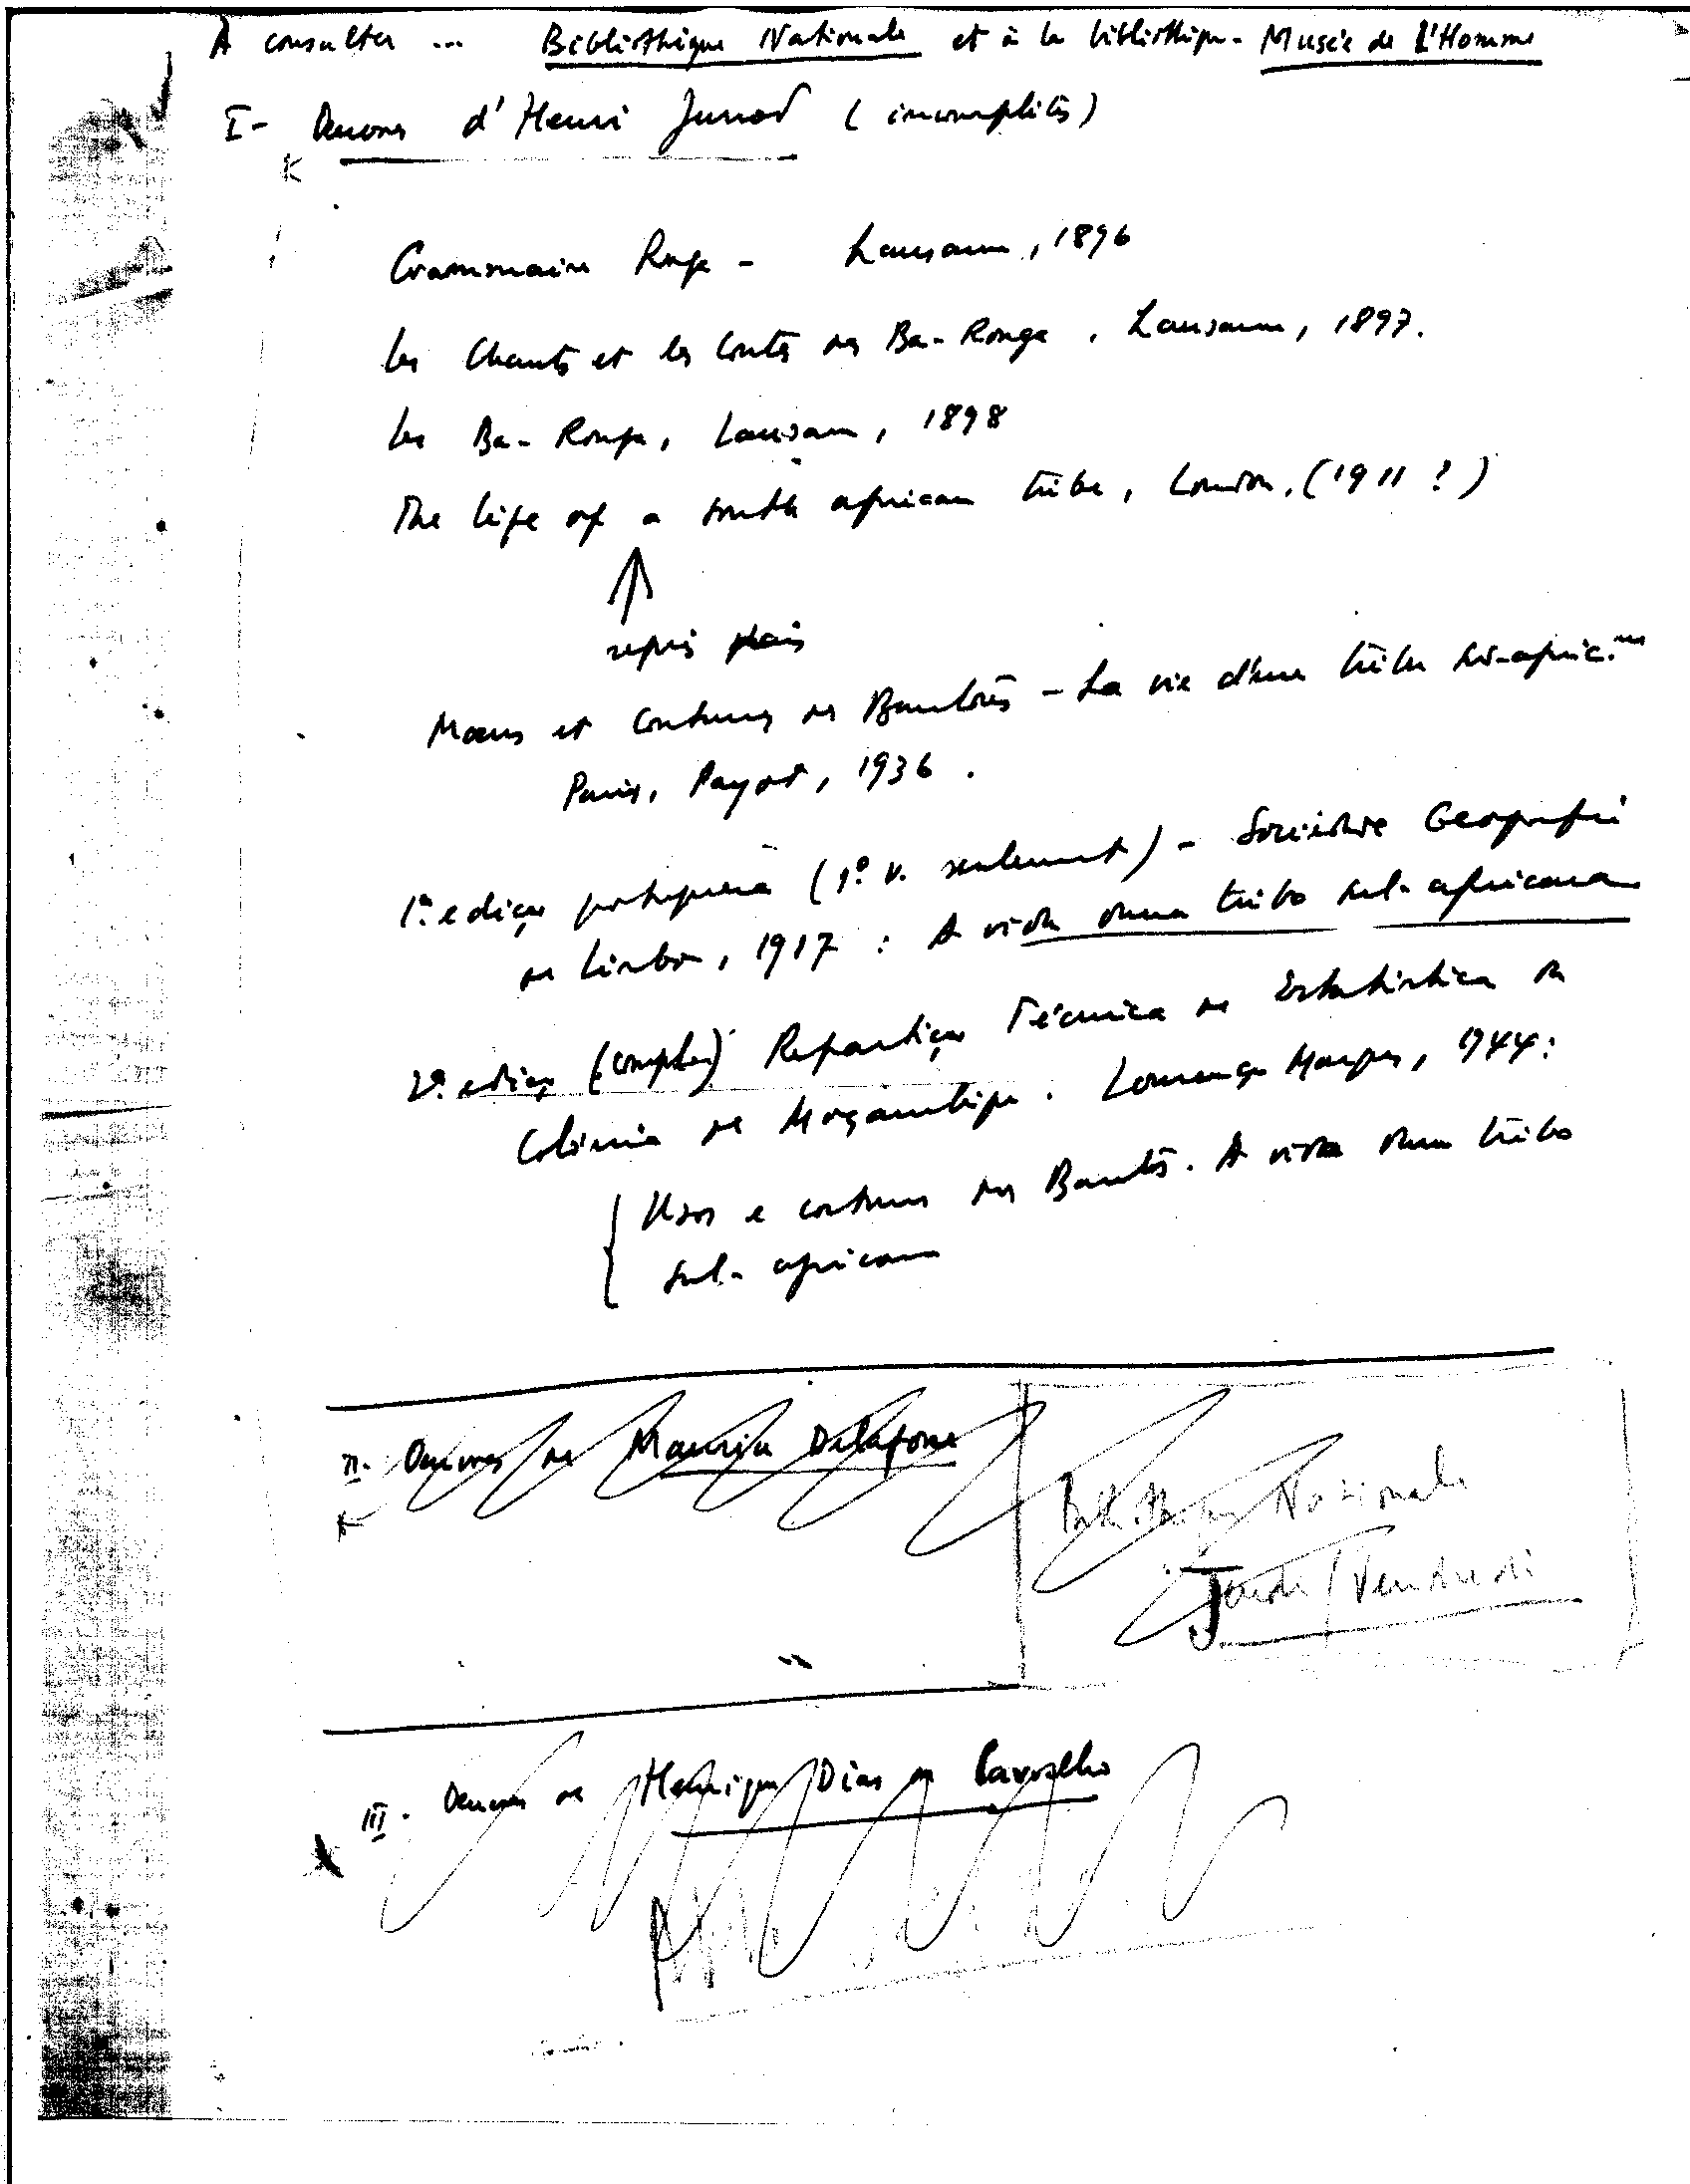 À consulter ... Bibliothèque Nationale et à la bibliothèque Musée de l'Homme
I - Œuvres d'Henri Junod (incomplètes)
Grammaire Ronga - Lausanne, 1896
Les Chants et les Contes des Ba-Ronga. Lausanne, 1897.
Les Ba-Ronga, Lausanne, 1898
The life of a south african tribe, London, (1911 ?)
repris dans
Mœurs et Coutumes des Bantous - La vie d'une tribu sud-africaine
Paris, Payot, 1936.
1ª edição portuguesa (1º v. seulement) - Sociedade Geografia
de Lisboa, 1917 : A vida duma tribo sul-africana
2ª edição (complète) Repartição Técnica de Estatística da
Colónia de Moçambique. Lourenço Marques, 1944:
Usos e costumes dos Bantos. A vida duma tribo
sul-africana
II - Œuvres de Maurice Delafosse
Bibliothèque Nationale
Jeudi / Vendredi
III - Œuvres de Henrique Dias de Carvalho